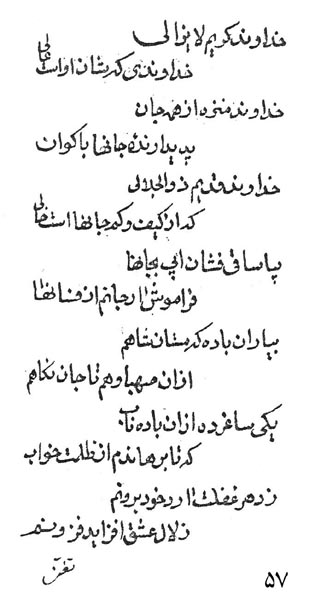 خداوند کریم لایزالی
خداوندی که شان او است عالی
خداوند منزه از همه جان
پدیدارنده جانها باکوان
خداوند قدیم ذوالجلالی
که از کیف و کم جانها است خالی
بیا ساقی فشان ابی بجانها
فراموش ار جانم از فسانها
بیار ان باده که بستان شاهم
ازان صهبا وهم تا جان بکاهم
یکی ساغر ده ازان باده ناب
که تا برهاندم از ظلمت خواب
ز دهر غفلت ارد خود برونم
زلال عشق افزاید فزونم
۵۷